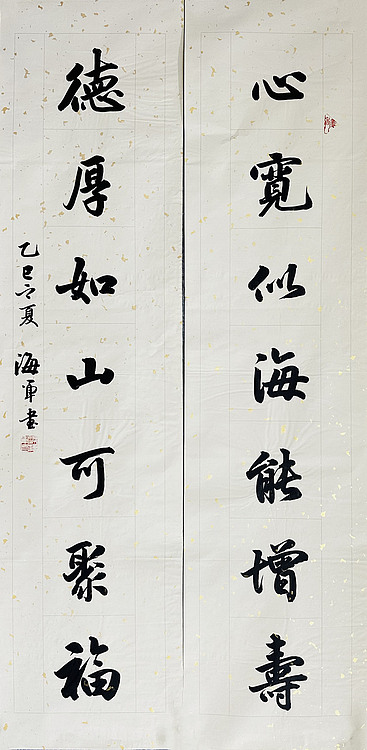 心寬似海能增壽
德厚如山可聚福
乙巳之夏 海軍書